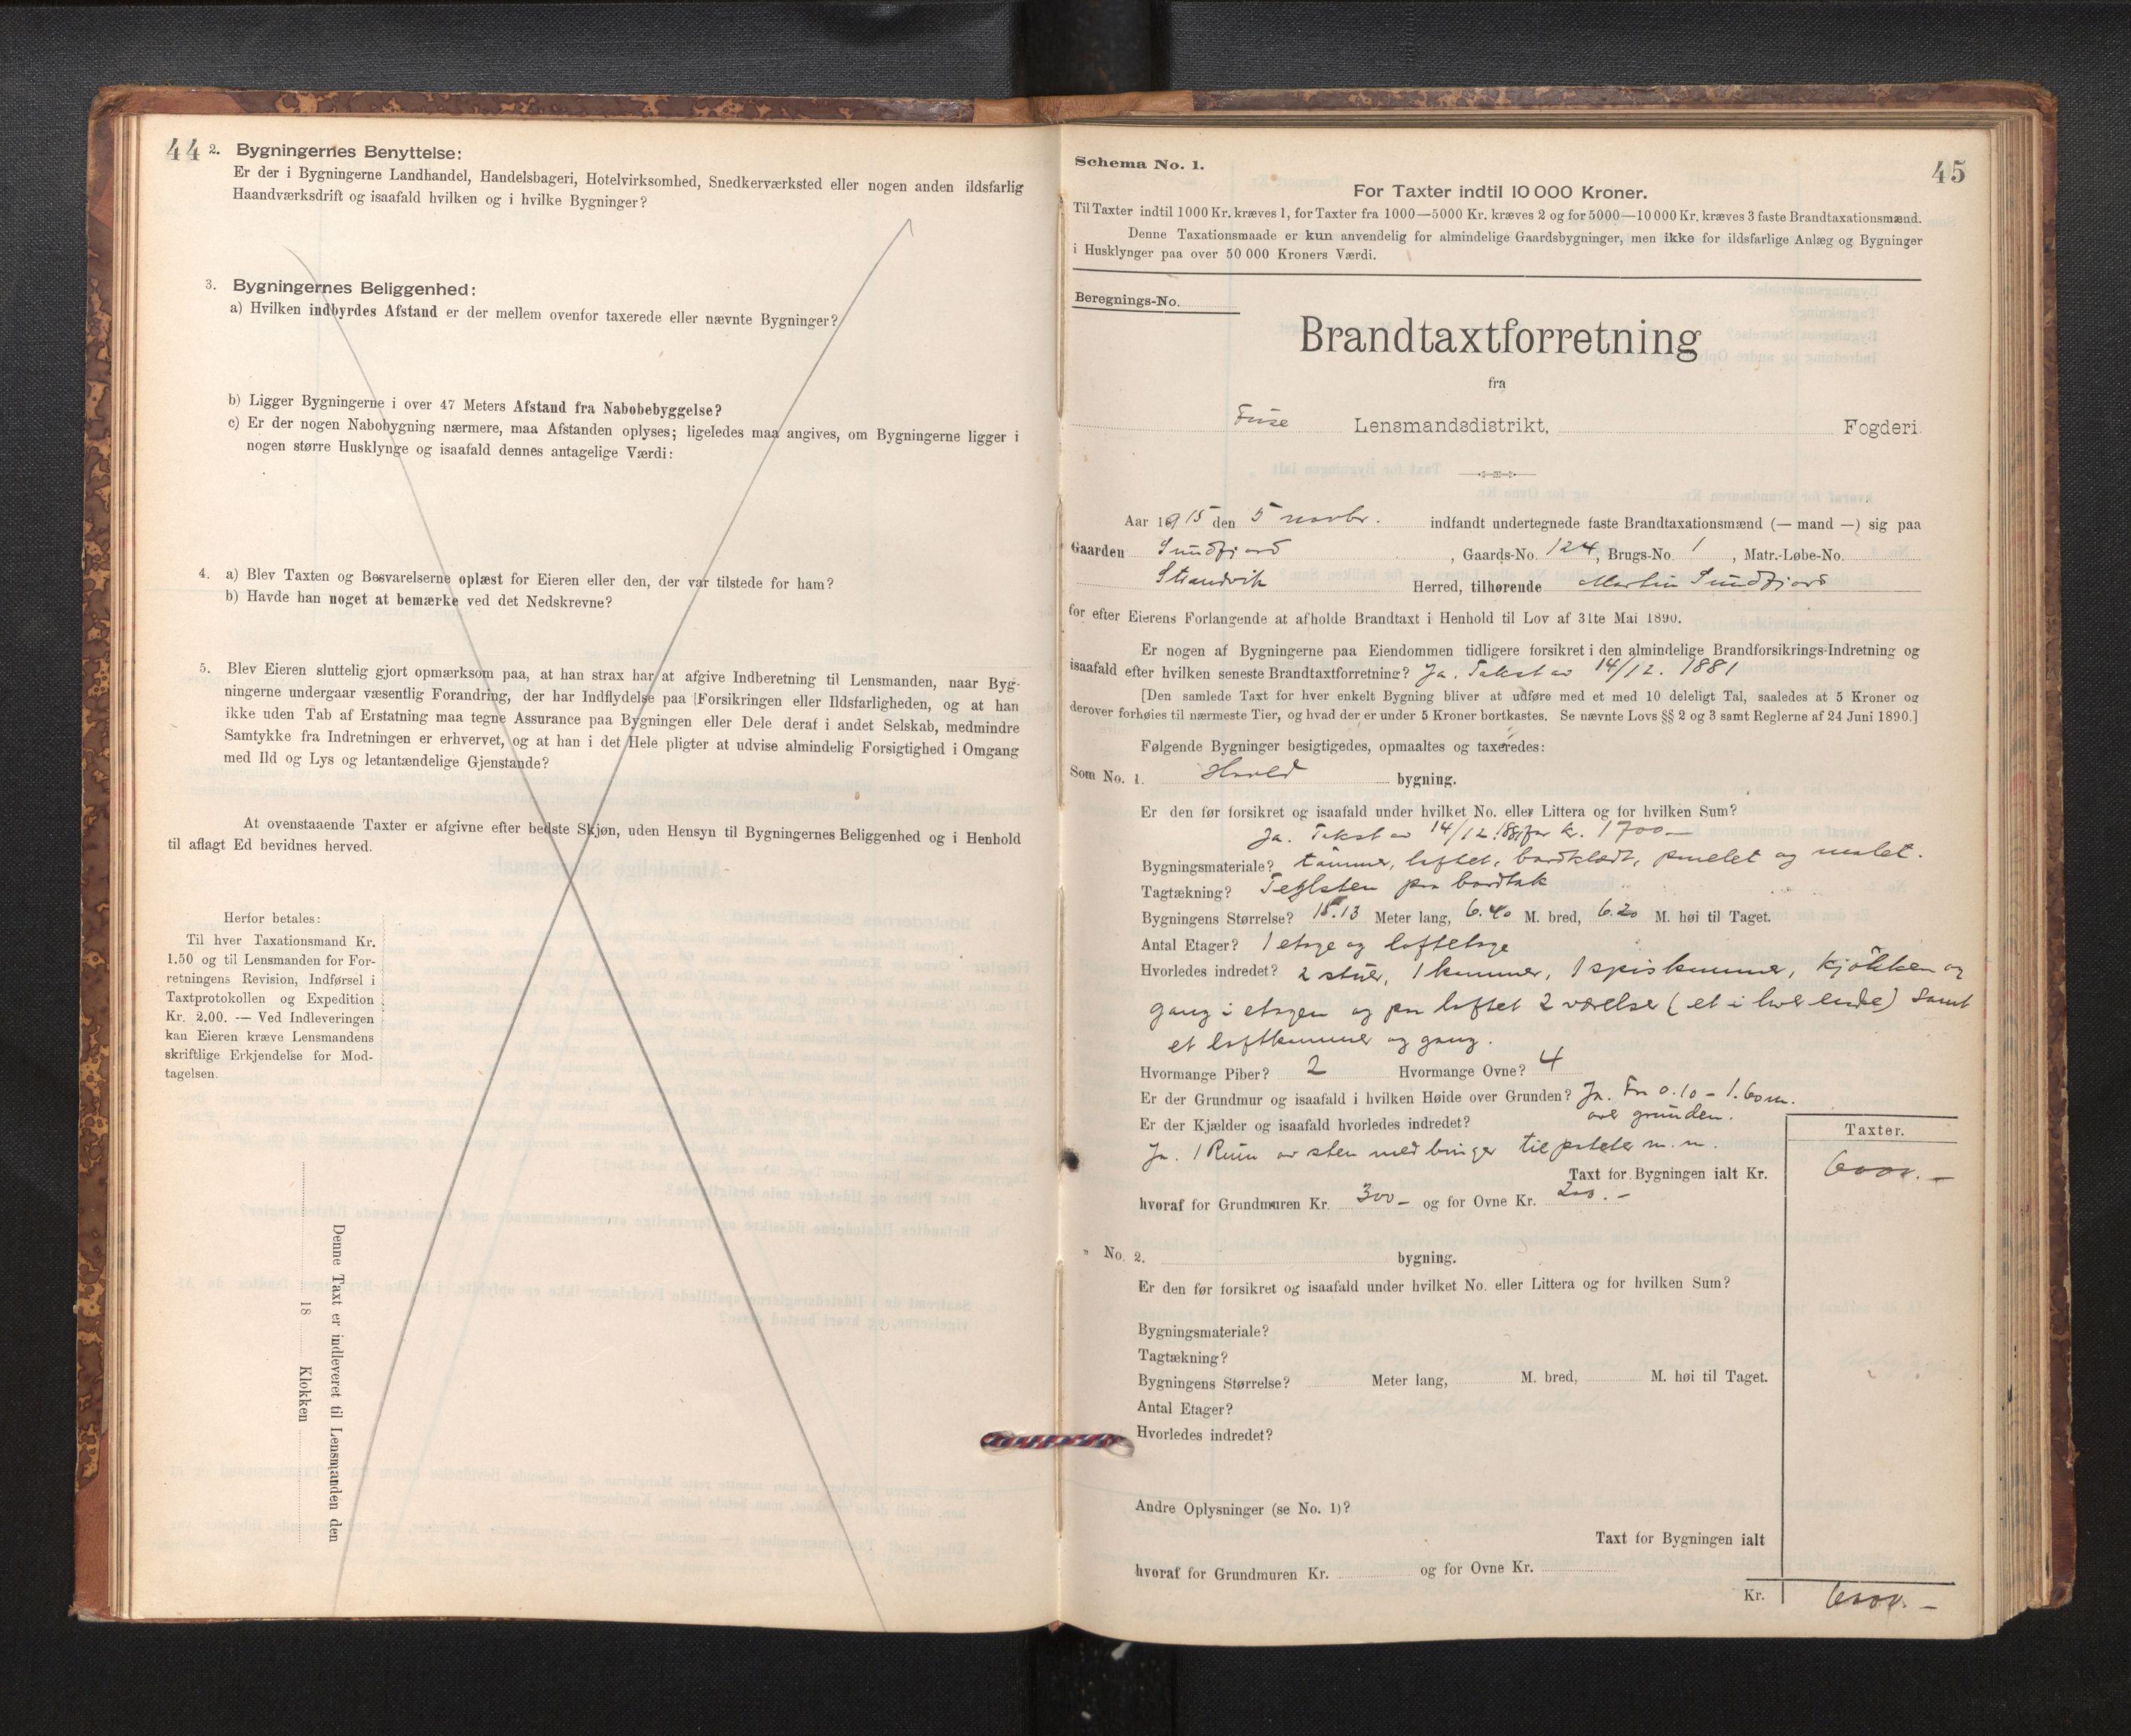 44
2. Bygningernes Benyttelse:
Er der i Bygningerne Landhandel, Handelsbageri, Hotelvirksomhed, Snedkerværksted eller nogen anden ildsfarlig
Haandværksdrift og isaafald hvilken og i hvilke Bygninger?
3. Bygningernes Beliggenhed:
a) Hvilken indbyrdes Afstand er der mellem ovenfor taxerede eller nævnte Bygninger?
b) Ligger Bygningerne i over 47 Meters Afstand fra Nabobebyggelse?
c) Er der nogen Nabobygning nærmere, maa Afstanden oplyses; ligeledes maa angives, om Bygningerne ligger i
nogen større Husklynge og isaafald dennes antagelige Værdi:
4. a) Blev Taxten og Besvarelserne oplæst for Eieren eller den, der var tilstede for ham?
b) Havde han noget at bemærke ved det Nedskrevne?
5. Blev Eieren sluttelig gjort opmærksom paa, at han strax har at afgive Indberetning til Lensmanden, naar Byg-
ningerne undergaar væsentlig Forandring, der har Indflydelse paa Forsikringen eller Ildsfarligheden, og at han
ikke uden Tab af Erstatning maa tegne Assurance paa Bygningen eller Dele deraf i andet Selskab, medmindre
Samtykke fra Indretningen er erhvervet, og at han i det Hele pligter at udvise almindelig Forsigtighed i Omgang
med Ild og Lys og letantændelige Gjenstande?
At ovenstaaende Taxter er afgivne efter bedste Skjøn, uden Hensyn til Bygningernes Beliggenhed og i Henhold
til aflagt Ed bevidnes herved.
Herfor betales:
Til hver Taxationsmand Kr.
1.50 og til Lensmanden for For-
retningens Revision, Indførsel i
Taxtprotokollen og Expedition
Kr. 2.00. — Ved Indleveringen
kan Eieren kræve Lensmandens
skriftlige Erkjendelse for Mod-
tagelsen.
Denne Taxt er indleveret til Lensmanden den
18 Klokken
Schema No. 1.
45
For Taxter indtil 10 000 Kroner.
Til Taxter indtil 1000 Kr. kræves 1, for Taxter fra 1000—5000 Kr. kræves 2 og for 5000—10 000 Kr. kræves 3 faste Brandtaxationsmænd.
Denne Taxationsmaade er kun anvendelig for almindelige Gaardsbygninger, men ikke for ildsfarlige Anlæg og Bygninger
i Husklynger paa over 50 000 Kroners Værdi.
Beregnings-No.
Brandtaxtforretning
fra
Fuse Lensmandsdistrikt, Fogderi
Aar 1915 den 5 novbr. indfandt undertegnede faste Brandtaxationsmænd (— mand —) sig paa
Gaarden Sundfjord, Gaards-No. 124, Brugs-No. 1, Matr.-Løbe-No.
Strandvik Herred, tilhørende Martin Sundfjord
for efter Eierens Forlangende at afholde Brandtaxt i Henhold til Lov af 31te Mai 1890.
Er nogen af Bygningerne paa Eiendommen tidligere forsikret i den almindelige Brandforsikrings-Indretning og
isaafald efter hvilken seneste Brandtaxtforretning? Ja. Takst av 14/12. 1881
[Den samlede Taxt for hver enkelt Bygning bliver at udføre med et med 10 deleligt Tal, saaledes at 5 Kroner og
derover forhøies til nærmeste Tier, og hvad der er under 5 Kroner bortkastes. Se nævnte Lovs §§ 2 og 3 samt Reglerne af 24 Juni 1890.]
Følgende Bygninger besigtigedes, opmaaltes og taxeredes:
Som No. 1. bygning.
Er den før forsikret og isaafald under hvilket No. eller Littera og for hvilken Sum?
Ja. Takst av 14/12.1881 for kr. 1700.—
Bygningsmateriale? tømmer, loftet, bordklædt, panelet og malet.
Tagtækning? Teglsten paa bordtak
Bygningens Størrelse? 15.13 Meter lang, 6.40 M. bred, 6.20 M. høi til Taget.
Antal Etager? 1 etage og loftetage
Hvorledes indredet? 2 stuer, 1 kammer, 1 spiskammer, kjøkken og
gang i etagen og paa loftet 2 værelser (et i hver ende) samt
et loftkammer og gang.
Hvormange Piber? 2 Hvormange Ovne? 4
Er der Grundmur og isaafald i hvilken Høide over Grunden? Ja. Fra 0.10 - 1.60 m.
over grunden.
Er der Kjælder og isaafald hvorledes indredet?
Ja. 1 Rum av sten med binger til poteter m. m.
Taxter.
Taxt for Bygningen ialt Kr. 6000.—
hvoraf for Grundmuren Kr. 300— og for Ovne Kr. 200.—
" No. 2. bygning.
Er den før forsikret og isaafald under hvilket No. eller Littera og for hvilken Sum?
Bygningsmateriale?
Tagtækning?
Bygningens Størrelse? Meter lang, M. bred, M. høi til Taget.
Antal Etager?
Hvorledes indredet?
Andre Oplysninger (se No. 1)?
Taxt for Bygningen ialt
hvoraf for Grundmuren Kr. og for Ovne Kr.
Kr. 6000.—